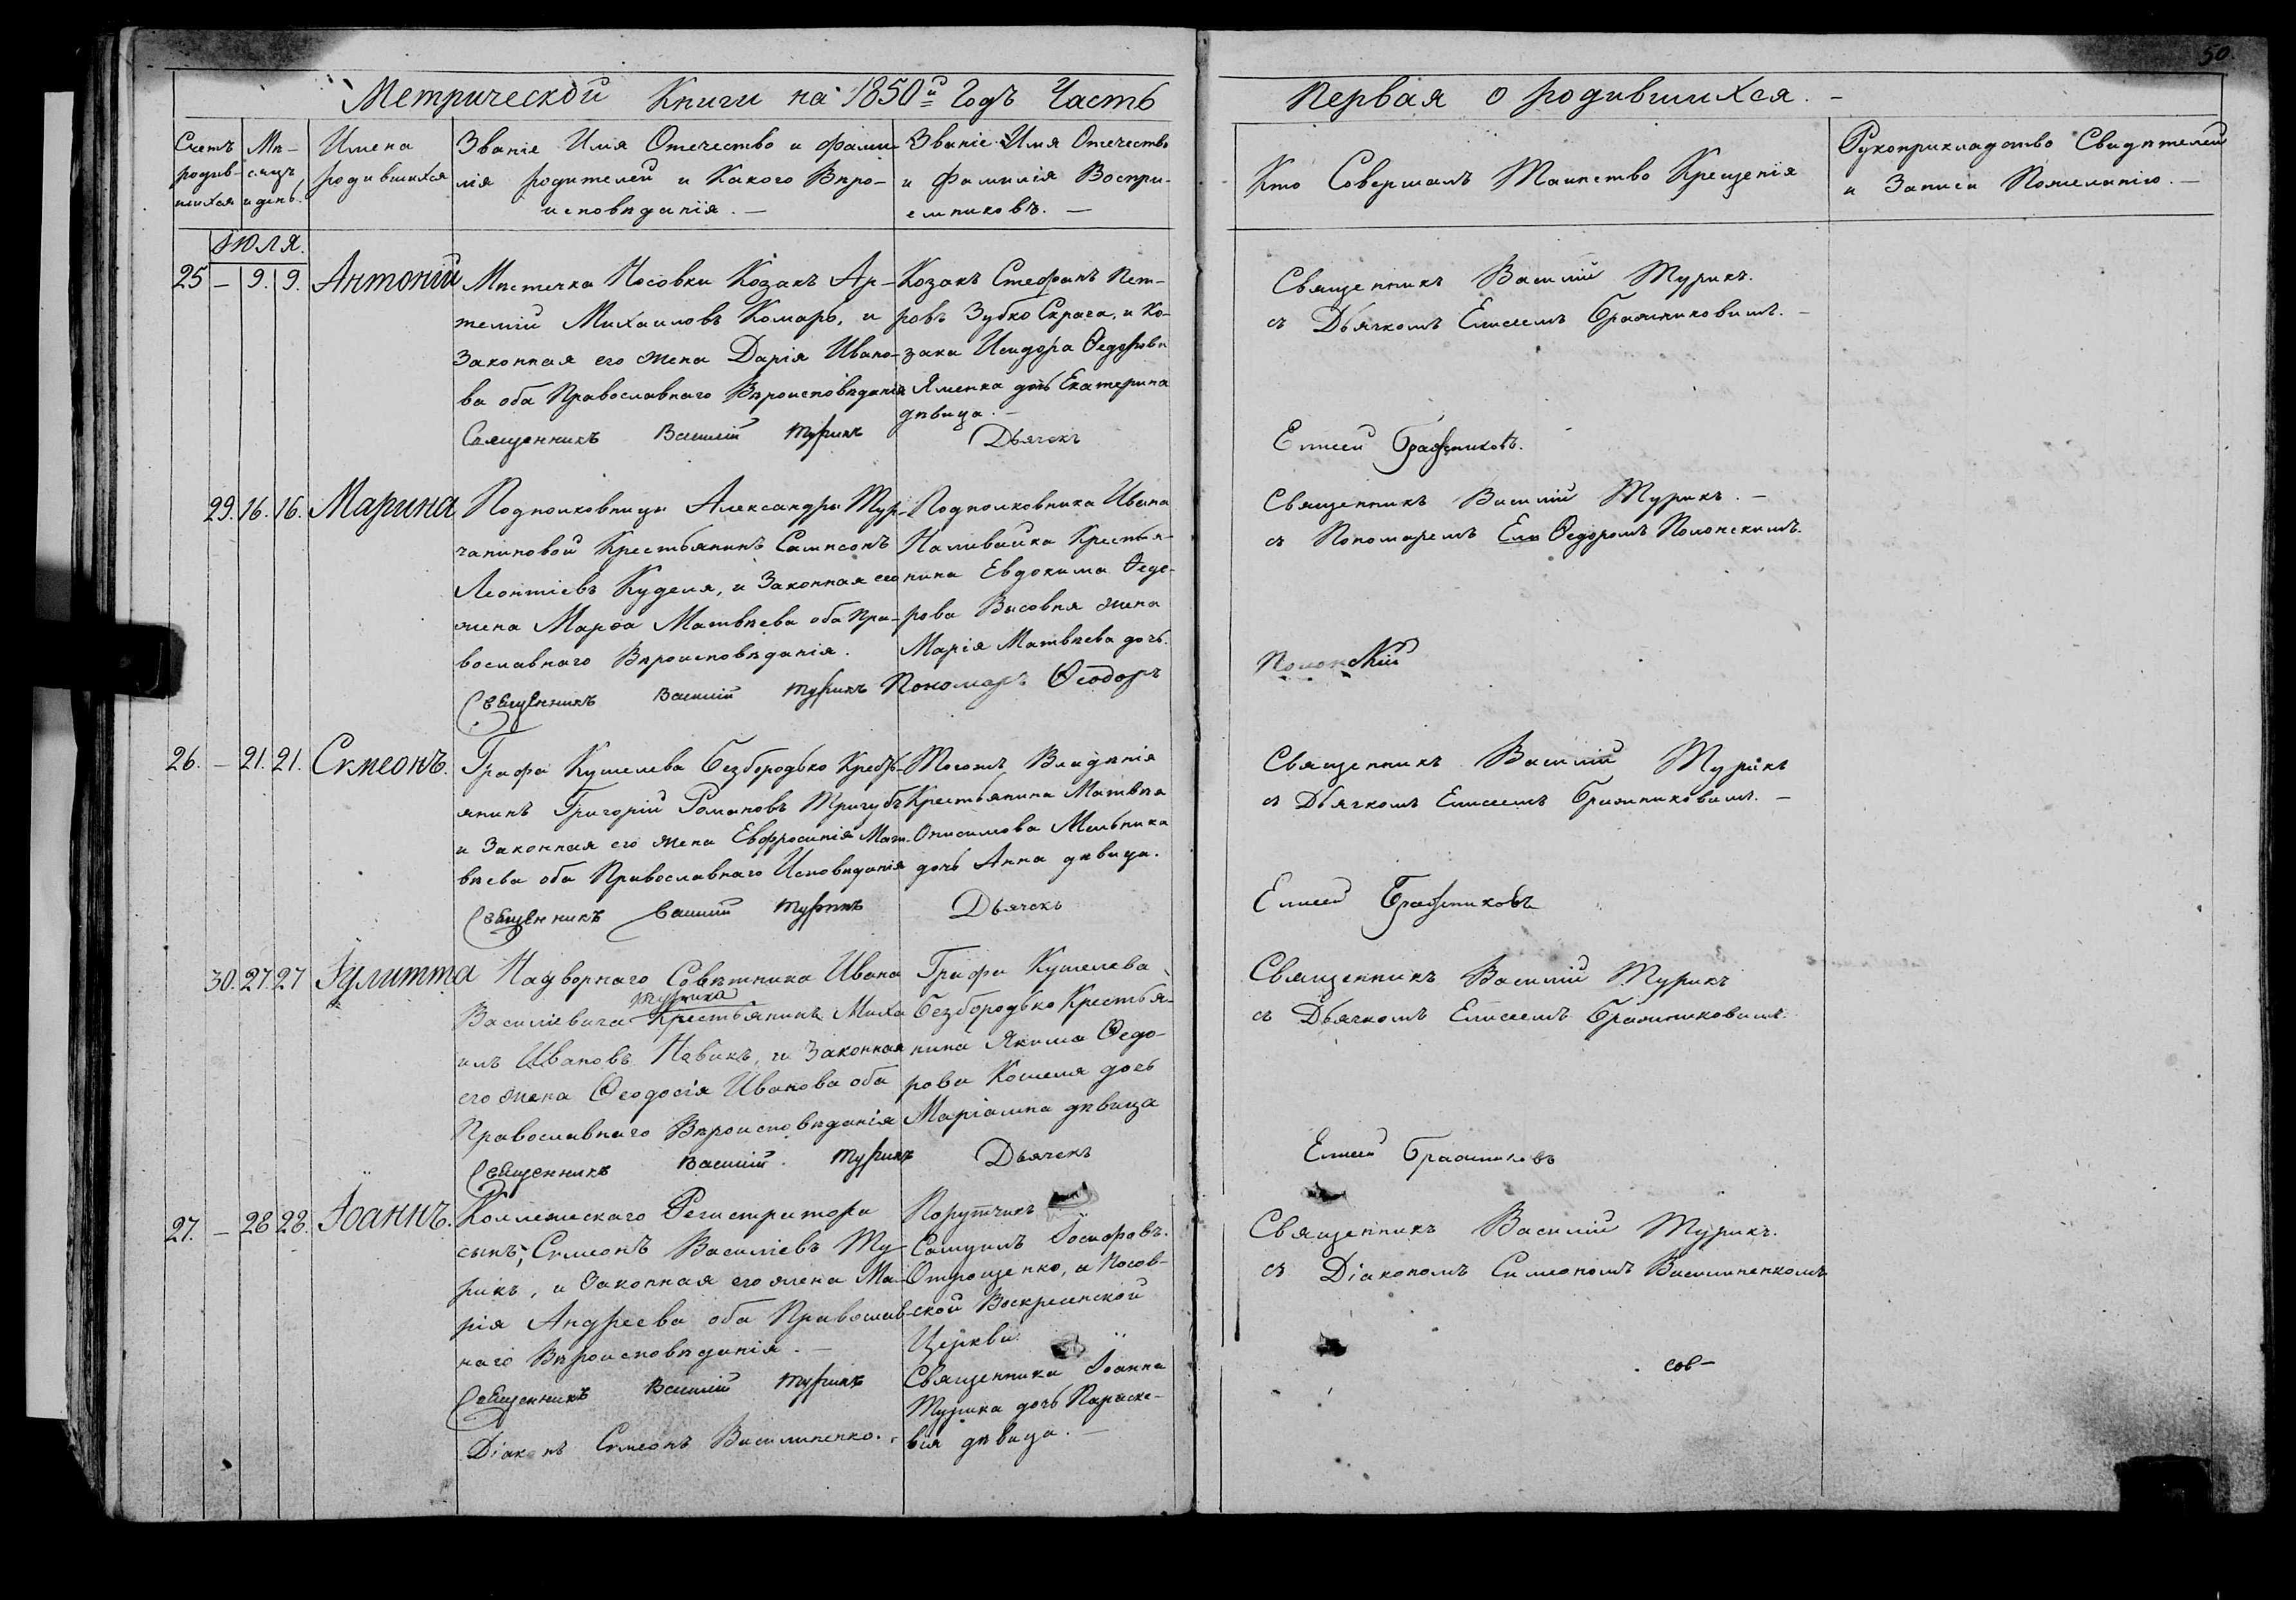 50.
Метрической Книги на 1850й Годъ Часть
Первая о родившихся. –
Счетъ
родив-
шихся
Мѣ-
сяцъ,
и день.
Имена
родившихся
Званіе Имя Отечество и фами-
лія родителей и Какого Вѣро-
исповѣданія. –
Званіе Имя Отечество
и Фамилія Воспри-
емниковъ. –
Кто Совершалъ Таинство Крещенія
Рукоприкладство Свидѣтелей
и Записи Пожеланію. –
Іюля.
25 – 9. 9. Антоній
Мѣстечка Носовки Козакъ Ар-
темій Михаиловъ Комаръ, и
Законная его жена Дарія Ивано-
ва оба Православнаго Вѣроисповѣданія
Священникъ Василій Турикъ
Козакъ Стефанъ Пет-
ровъ Зубко Скрага, и Ко-
зака Исидора Ѳедорова
Яменка дочь Екатерина
дѣвица. –
Дьячекъ
Священникъ Василій Турикъ.
съ Дьячкомъ Елисеемъ Бражниковымъ. –
Елисей Бражниковъ.
29. 16. 16. Марина
Подполковницы Александры Тур-
чаниновой Крестьянинъ Сампсонъ
Леонтіевъ Куделя, и Законная его
жена Марѳа Матвѣева оба Пра-
вославнаго Вѣроисповѣданія.
Священникъ Василій Турикъ
Подполковника Ивана
Наливайка Крестья-
нина Евдокима Ѳедо-
рова Высовня жена
Марія Матвѣева дочь.
Пономарь Ѳеодоръ
Священникъ Василій Турикъ. –
съ Пономаремъ Ели Ѳедоромъ Полонскимъ.
Полонскій
26. – 21. 21. Сѵмеонъ.
Графа Кушелева Безбородько Кресть-
янинъ Григорій Романовъ Тригубъ
и Законная его жена Евфросинія Мат-
вѣева оба Православнаго Исповѣданія
Священникъ Василій Турикъ
Тогожъ Владѣнія
Крестьянина Матвѣя
Онисимова Мельника
дочь Анна дѣвица.
Дьячекъ
Священникъ Василій Турикъ
съ Дьячкомъ Елисеемъ Бражниковымъ. –
Елисей Бражниковъ
30. 27. 27 Іулитта
Надворнаго Совѣтника Ивана
Турика
Василіевича Крестьянинъ Миха
илъ Ивановъ Новикъ, и Законная
его жена Ѳеодосія Иванова оба
Православнаго Вѣроисповѣданія
Священникъ Василій Турикъ
Графа Кушелева
Безбородько Крестья-
нина Якима Ѳедо-
рова Кошеля дочь
Маріамна дѣвица
Дьячекъ
Священникъ Василій Турикъ
съ Дьячкомъ Елисеемъ Бражниковымъ.
Елисей Бражниковъ
27. – 28 28. Іоаннъ.
Коллежскаго Регистратора
сынъ, Сѵмеонъ Василіевъ Ту-
рикъ, и Законная его жена Ма-
рія Андреева оба Православ-
наго Вѣроисповѣданія. –
Священникъ Василій Турикъ
Діаконъ Сѵмеонъ Василиненко.
Порутчикъ
Самуилъ Іосифовъ.
Отрощенко, и Носов-
ской Воскресенской
Церкви
Священника Іоанна
Турика дочь Параске-
вія дѣвица. –
Священникъ Василій Турикъ.
съ Діакономъ Симеономъ Василиненкомъ
сов-